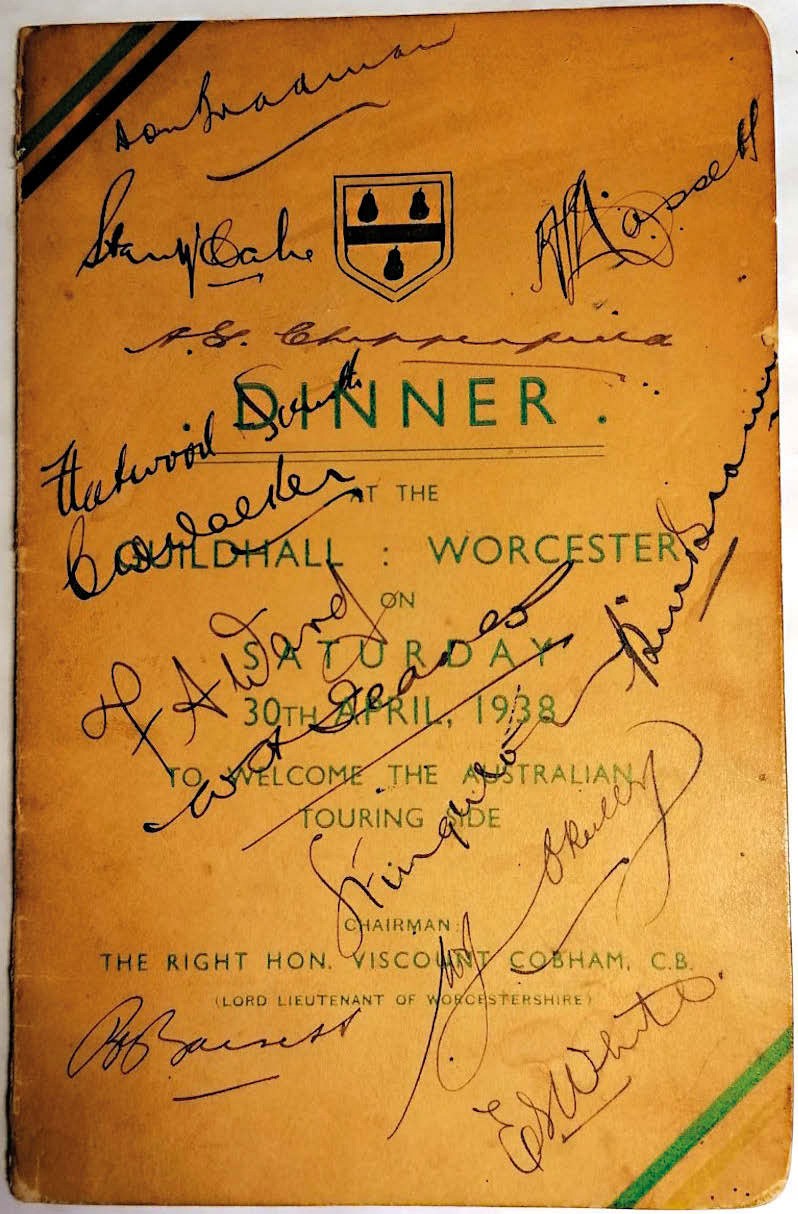 Don Bradman
Stan McCabe
A L Hassett
A.G. Chipperfield
DINNER .
Fleetwood Smith
AT THE
C W Walker
GUILDHALL : WORCESTER
ON
F A Ward
SATURDAY
W H Jeanes
30TH APRIL, 1938
TO WELCOME THE AUSTRALIAN
TOURING SIDE
J Fingleton
W J O'Reilly
CHAIRMAN :
THE RIGHT HON. VISCOUNT COBHAM, C.B.
(LORD LIEUTENANT OF WORCESTERSHIRE)
B A Barnett
E S White